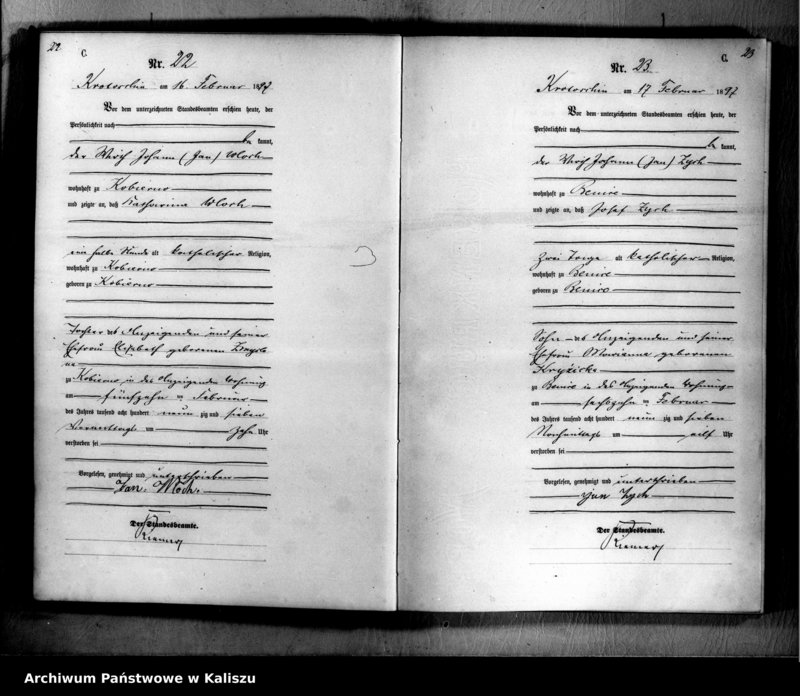 22
C.
Nr. 22
Krotoschin am 16 Februar 1897
Vor dem unterzeichneten Standesbeamten erschien heute, der
Persönlichkeit nach
be kannt,
der Wirth Johann (Jan) Wloch
wohnhaft zu Kobierno
und zeigte an, daß Katharina Wloch
eine halbe Stunde alt katholischer Religion,
wohnhaft zu Kobierno
geboren zu Kobierno
Tochter des Anzeigenden und seiner
Ehefrau Elisabeth geborenen
zu Kobierno in des Anzeigenden Wohnung
am fünfzehn ten Februar
des Jahres tausend acht hundert neun zig und sieben
Vormittags um zehn Uhr
verstorben sei
Vorgelesen, genehmigt und unterschrieben
Jan Włoch.
Der Standesbeamte.
23
C.
Nr. 23
Krotoschin am 17 Februar 1897
Vor dem unterzeichneten Standesbeamten erschien heute, der
Persönlichkeit nach
be kannt,
der Wirth Johann (Jan) Zych
wohnhaft zu Benice
und zeigte an, daß Josef Zych
zwei Tage alt katholischer Religion,
wohnhaft zu Benice
geboren zu Benice
Sohn des Anzeigenden und seiner
Ehefrau Marianna geborenen
zu Benice in des Anzeigenden Wohnung
am sechzehn ten Februar
des Jahres tausend acht hundert neun zig und sieben
Nachmittags um eilf Uhr
verstorben sei
Vorgelesen, genehmigt und unterschrieben
Jan Zych
Der Standesbeamte.
Archiwum Państwowe w Kaliszu